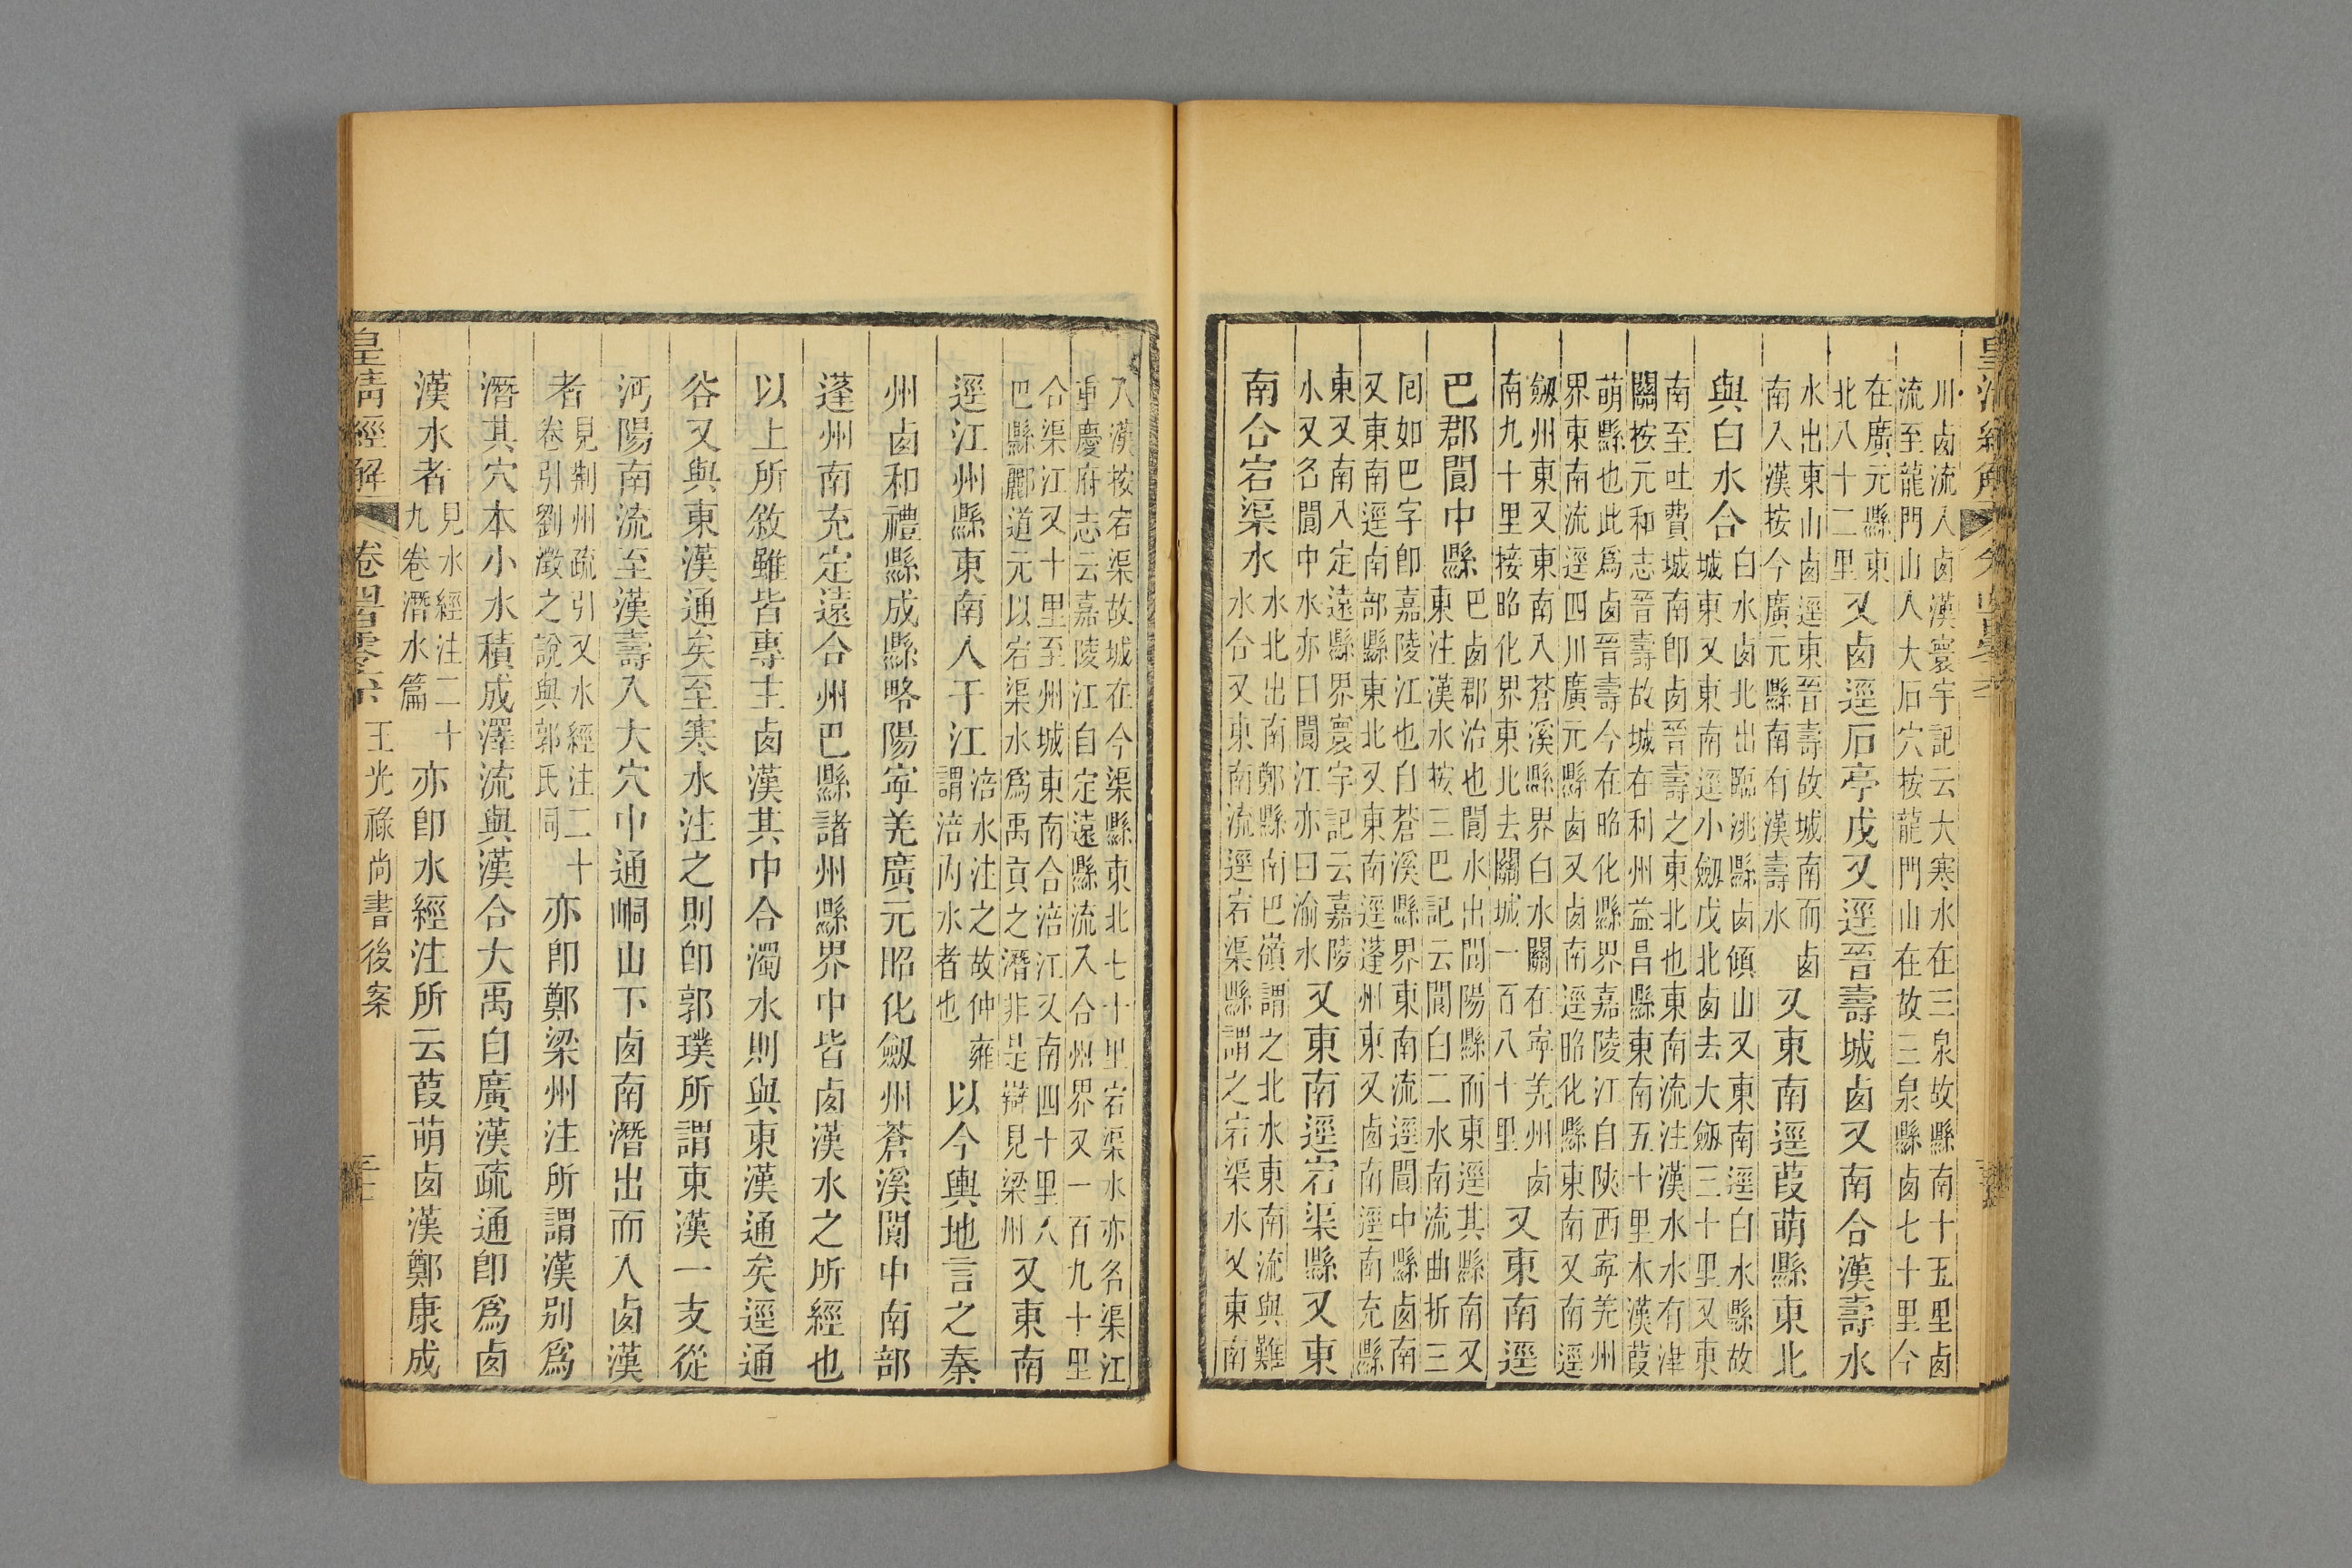 川卥流入卥漢寰宇記云大寒水在三泉故縣南十五里卥
流至龍門山入大石穴按龍門山在故三泉縣卥七十里今
在廣元縣東
北八十二里
又卥逕石亭戍又逕晉壽城卥又南合漢壽水
水出東山卥逕東晉壽故城南而卥
南入漢按今廣元縣南有漢壽水
又東南逕葭萌縣東北
與白水合
白水卥北出臨洮縣卥傾山又東南逕白水縣故
城東又東南逕小劔戍北卥去大劔三十里又東
南至吐費城南即卥晉壽之東北也東南流注漢水水有津
關按元和志晉壽故城在利州益昌縣東南五十里本漢葭
萌縣也此爲卥晉壽今在昭化縣界嘉陵江自陝西寧羌州
界東南流逕四川廣元縣卥又卥南逕昭化縣東南又南逕
劔州東又東南入蒼溪縣界白水關在寧羌州卥
南九十里接昭化界東北去關城一百八十里
又東南逕
巴郡閬中縣
巴卥郡治也閬水出閬陽縣而東逕其縣南又
東注漢水按三巴記云閬白二水南流曲折三
囘如巴字即嘉陵江也自蒼溪縣界東南流逕閬中縣卥南
又東南逕南部縣東北又東南逕蓬州東又卥南逕南充縣
東又南入定遠縣界寰宇記云嘉陵
水又名閬中水亦曰閬江亦曰渝水
又東南逕宕渠縣又東
南合宕渠水
水北出南鄭縣南巴嶺謂之北水東南流與難
水合又東南流逕宕渠縣謂之宕渠水又東南
入漢按宕渠故城在今渠縣東北七十里宕渠水亦名渠江
重慶府志云嘉陵江自定遠縣流入合州界又一百九十里
合渠江又十里至州城東南合涪江又南四十里入
巴縣酈道元以宕渠水爲禹貢之潛非是辯見梁州
又東南
逕江州縣東南入于江
涪水注之故仲雍
謂涪內水者也
以今輿地言之秦
州卥和禮縣成縣略陽寧羌廣元昭化劔州蒼溪閬中南部
蓬州南充定遠合州巴縣諸州縣界中皆卥漢水之所經也
以上所敘雖皆專主卥漢其中合濁水則與東漢通矣逕通
谷又與東漢通矣至寒水注之則即郭璞所謂東漢一支從
沔陽南流至漢壽入大穴中通峒山下卥南潛出而入卥漢
者
見荆州疏引又水經注二十
卷引劉澂之說與郭氏同
亦即鄭梁州注所謂漢別爲
潛其穴本小水積成澤流與漢合大禹自廣漢疏通即爲卥
漢水者
見水經注二十
九卷潛水篇
亦即水經注所云葭萌卥漢鄭康成
皇清經解
卷四百零六
王光祿尚書後案